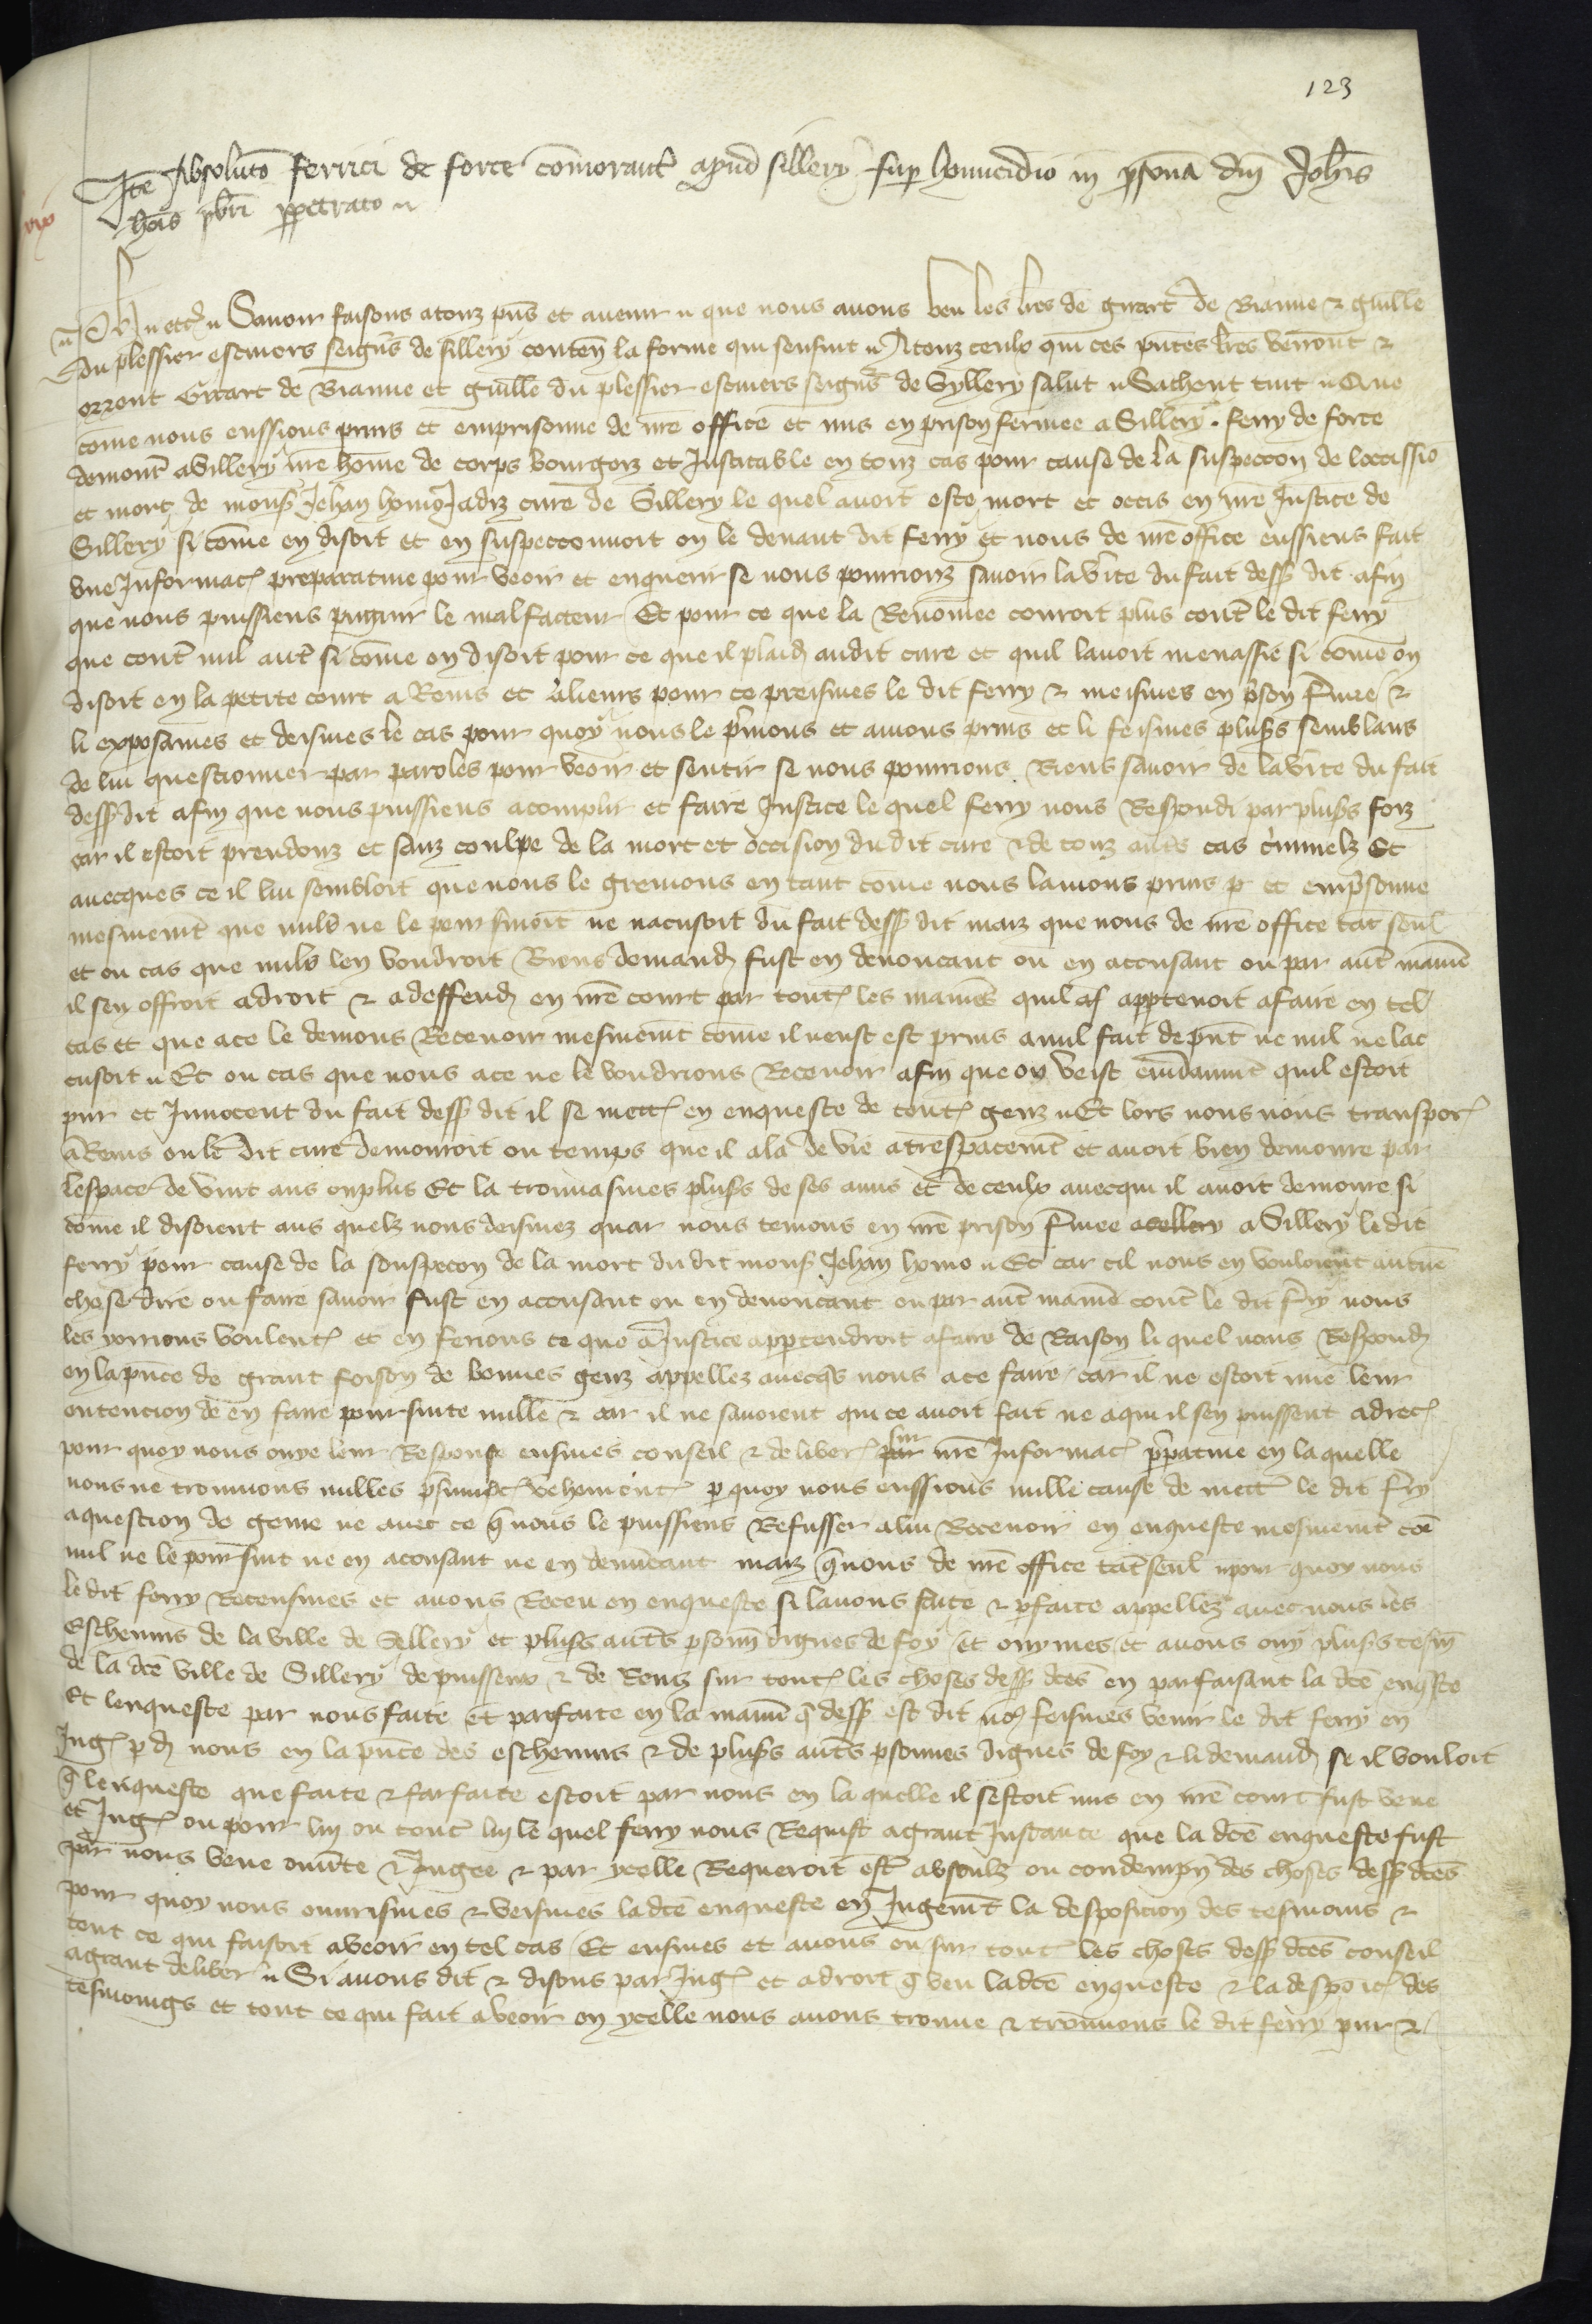 123
Ite Absoluto ferrici de force comorant apud sillery sup homicidio in psona dni Johis
hois pbri ppetrato
etc Savoir faisons a touz pns et avenir que nous avons veu les lres de girart de Bianne & guille
du plessier escuiers seigns de sillery conten la forme qui sensuit A touz ceulx qui ces pntes lres verront &
orront Girart de Bianne et guille du plessier escuiers seigns de Syllery salut Sachent tuit Que
come nous eussions prins et emprisonne de nre office et mis en prison fermee a Sillery. ferry de force
demont a Sillery nre home de corps bourgois et Justicable en touz cas pour cause de la suspeccon de loccissio
et mort de mons Jehan homo Jadiz cure de Sillery le quel avoit este mort et occis en nre Justice de
Sillery si come en disoit et en suspecconnoit on le devant dit ferry et nous de nre office eussiens fait
une Informac preparative pour veoir et enquerir se nous pourrionz savoir la vite du fait dess dit afin
que nous puissiens pugnir le malfacteur Et pour ce que la Renomee couroit plus cont le dit ferry
que cont nul aut si come on disoit pour ce que il plaid audit cure et quil lavoit menassie si come on
disoit en la petite court a Reins et alieurs pour ce preismes le dit ferry & meismes en pson fmee &
li exposames et deismes le cas pour quoy nous le pnions et avions prins et li feismes plus semblans
de lui questionner par paroles pour veoir et sentir se nous pourrions Riens savoir de la vite du fait
dess dit afin que nous puissiens acomplir et faire Justice le quel ferry nous Respondi par plus foiz
car il estoit preudonz et sanz coulpe de la mort et occision du dit cure & de touz auts cas cminelz Et
avecques ce il lui sembloit que nous le grevions en tant come nous lavions prins p et empsonne
mesmemt que nulz ne le poursuioit ne nacusoit du fait dess dit maiz que nous de nre office tat seul
et ou cas que nulz len voudroit Riens demand fust en denoncant ou en accusant ou par aut manie
il sen offroit a droit & a deffend en nre court par tout les manies quil appartenoit a faire en tel
cas et que a ce le devions Recevoir mesmemt come il neust este prins a nul fait de pnt ne nul ne lac
cusoit Et ou cas que nous a ce ne le voudrions Recevoir afin que on veist evidanmt quil estoit
pur et Innocent du fait dess dit il se mett en enqueste de tout genz Et lors nous nous transpor
a Reins ou le dit cure demouroit ou temps que il ala de vie a trespacemt et avoit bien demoure par
lespace de vint ans ou plus Et la trouvasmes plus de ses amis et de ceulx avecqui il avoit demoure si
come il disoient aus quelz nous deismes quar nous tenions en nre prison fmee a Sillery le dit
ferry pour cause de la souspecon de la mort du dit mons Jehan homo Et car cil nous en vouloient aucune
chose dire ou faire savoir fust en accusant ou en denoncant ou par aut manie cont le dit fry nous
les orrions voulent et en ferions ce que a Justice appartendroit a faire de Raison li quel nous Respond
en la pnce de grant foison de bonnes genz appellez avecqs nous a ce faire car il ne estoit mie leur
entencion de en faire poursuite nulle & car il ne savoient qui ce avoit fait ne a qui il sen puissent adrec
pour quoy nous ouye leur Response eusmes conseil & deliber sur nre Informac ppative en la quelle
nous ne trouvions nulles psumpc vehement p quoy nous eussions nulle cause de mett le dit fry
a question de gene ne avec ce q nous le puissiens Refusser a lui Recevoir en enqueste mesmemt coe
nul ne le poursuit ne en acousant ne en denucant maiz q nous de nre office tat seul pour quoy nous
le dit ferry Receusmes et avons Receu en enqueste si lavons faite & pfaite appellez avec nous les
Eschevins de la ville de Sellery et plus auts psonn dignes de foy et ouymes et avons ouy plus tesm
de la dce ville de Sillery de puisseux & de Reins sur tout les choses dess dces en parfaisant la dce enqste
Et lenqueste par nous faite et parfaite en la manie q dess est dit no feismes venir le dit ferry en
Jug pd nous en la pnce des eschevins & de plus auts psonnes dignes de foy & li demand se il vouloit
q lenqueste que faite & parfaite estoit par nous en la quelle il sestoit mis en nre court fust veue
et Jug ou pour luy ou cont luy le quel ferry nous Requist a grant Instance que la dce enqueste fust
par nous veue ouverte & Jugee & par ycelle Requeroit est absoulz ou condempn des choses dess dces
pour quoy nous ouvrismes & veismes la dce enqueste en Jugemt la desposicion des tesmoins &
tout ce qui faisoit a veoir en tel cas Et eusmes et avons eu sur tout les choses dess dces conseil
a grant deliber Si avons dit & disons par Jug et a droit q veu la dce enqueste & la desposic des
tesmoings et tout ce qui fait a veoir en ycelle nous avons trouve & trouvons le dit ferry pur &